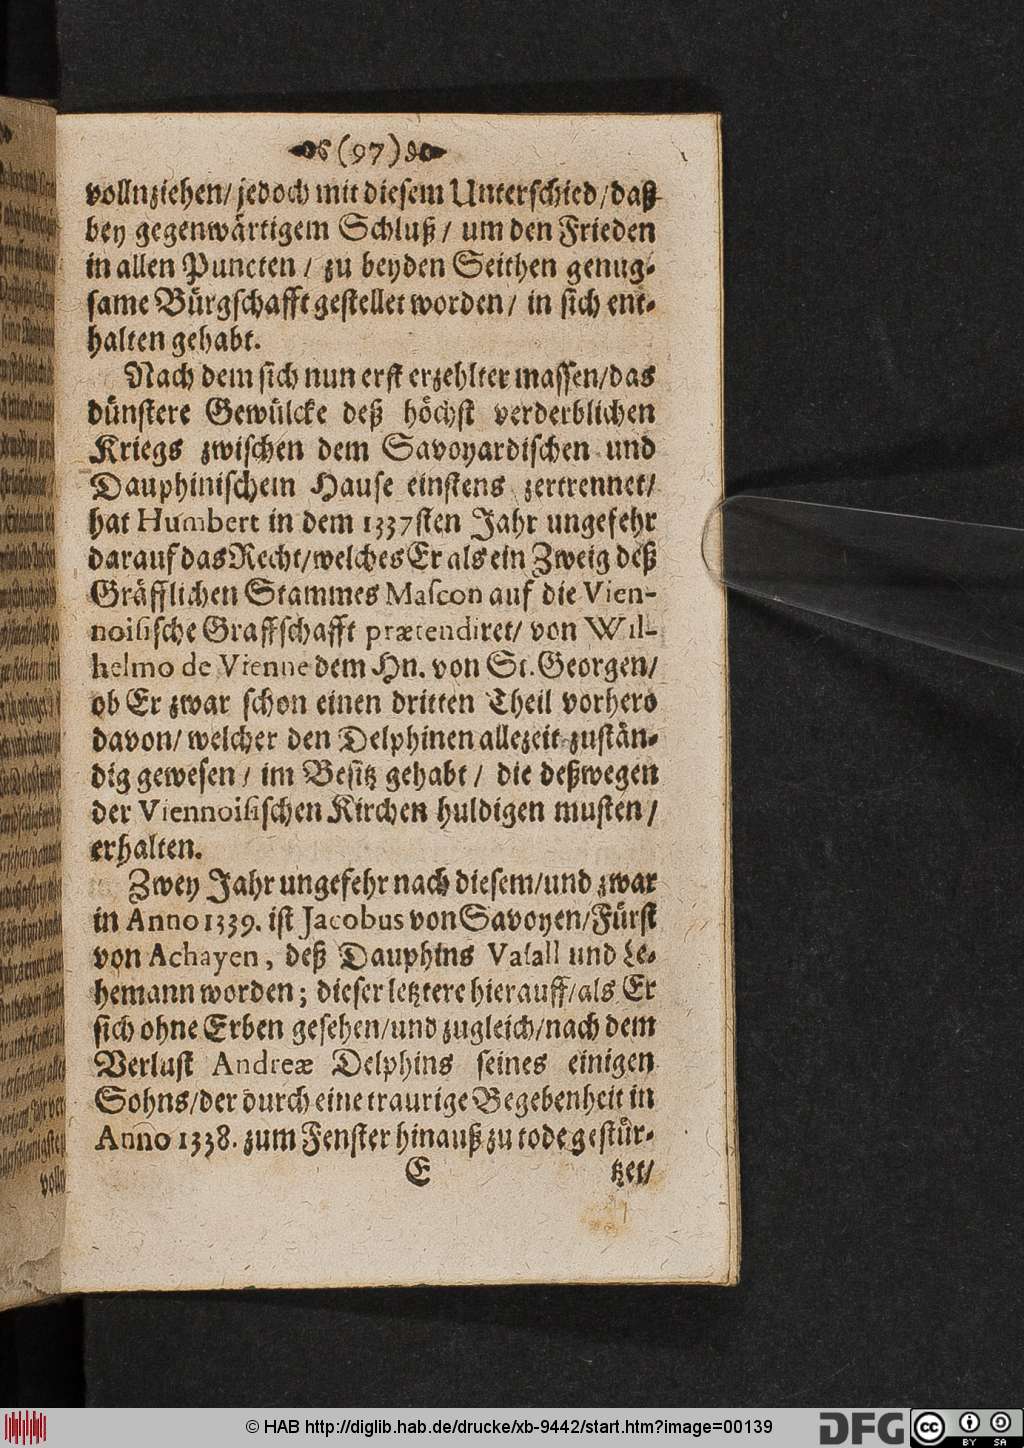 (97)
vollnziehen/ jedoch mit diesem Unterschied/ daß
bey gegenwärtigem Schluß / um den Frieden
in allen Puncten / zu beyden Seithen genug-
same Bürgschafft gestellet worden / in sich ent-
halten gehabt.
Nach dem sich nun erst erzehlter massen/das
dünstere Gewülcke deß höchst verderblichen
Kriegs zwischen dem Savoyardischen und
Dauphinischem Hause einstens zertrennet/
hat Humbert in dem 1337sten Jahr ungefehr
darauf das Recht/welches Er als ein Zweig deß
Gräfflichen Stammes Mascon auf die Vien-
noisische Graffschafft prætendiret/ von Wil-
helmo de Vienne dem Hn. von St. Georgen/
ob Er zwar schon einen dritten Theil vorhero
davon/ welcher den Delphinen allezeit zustän-
dig gewesen / im Besitz gehabt / die deßwegen
der Viennoisischen Kirchen huldigen musten /
erhalten.
Zwey Jahr ungefehr nach diesem/und zwar
in Anno 1339. ist Jacobus von Savoyen/Fürst
von Achayen, deß Dauphins Vasall und Le-
hemann worden; dieser letztere hierauff/als Er
sich ohne Erben gesehen/und zugleich/nach dem
Verlust Andreæ Delphins seines einigen
Sohns/der durch eine traurige Begebenheit in
Anno 1338. zum Fenster hinauß zu tode gestür-
E tzet/
© HAB http://diglib.hab.de/drucke/xb-9442/start.htm?image=00139
DFG
cc BY SA